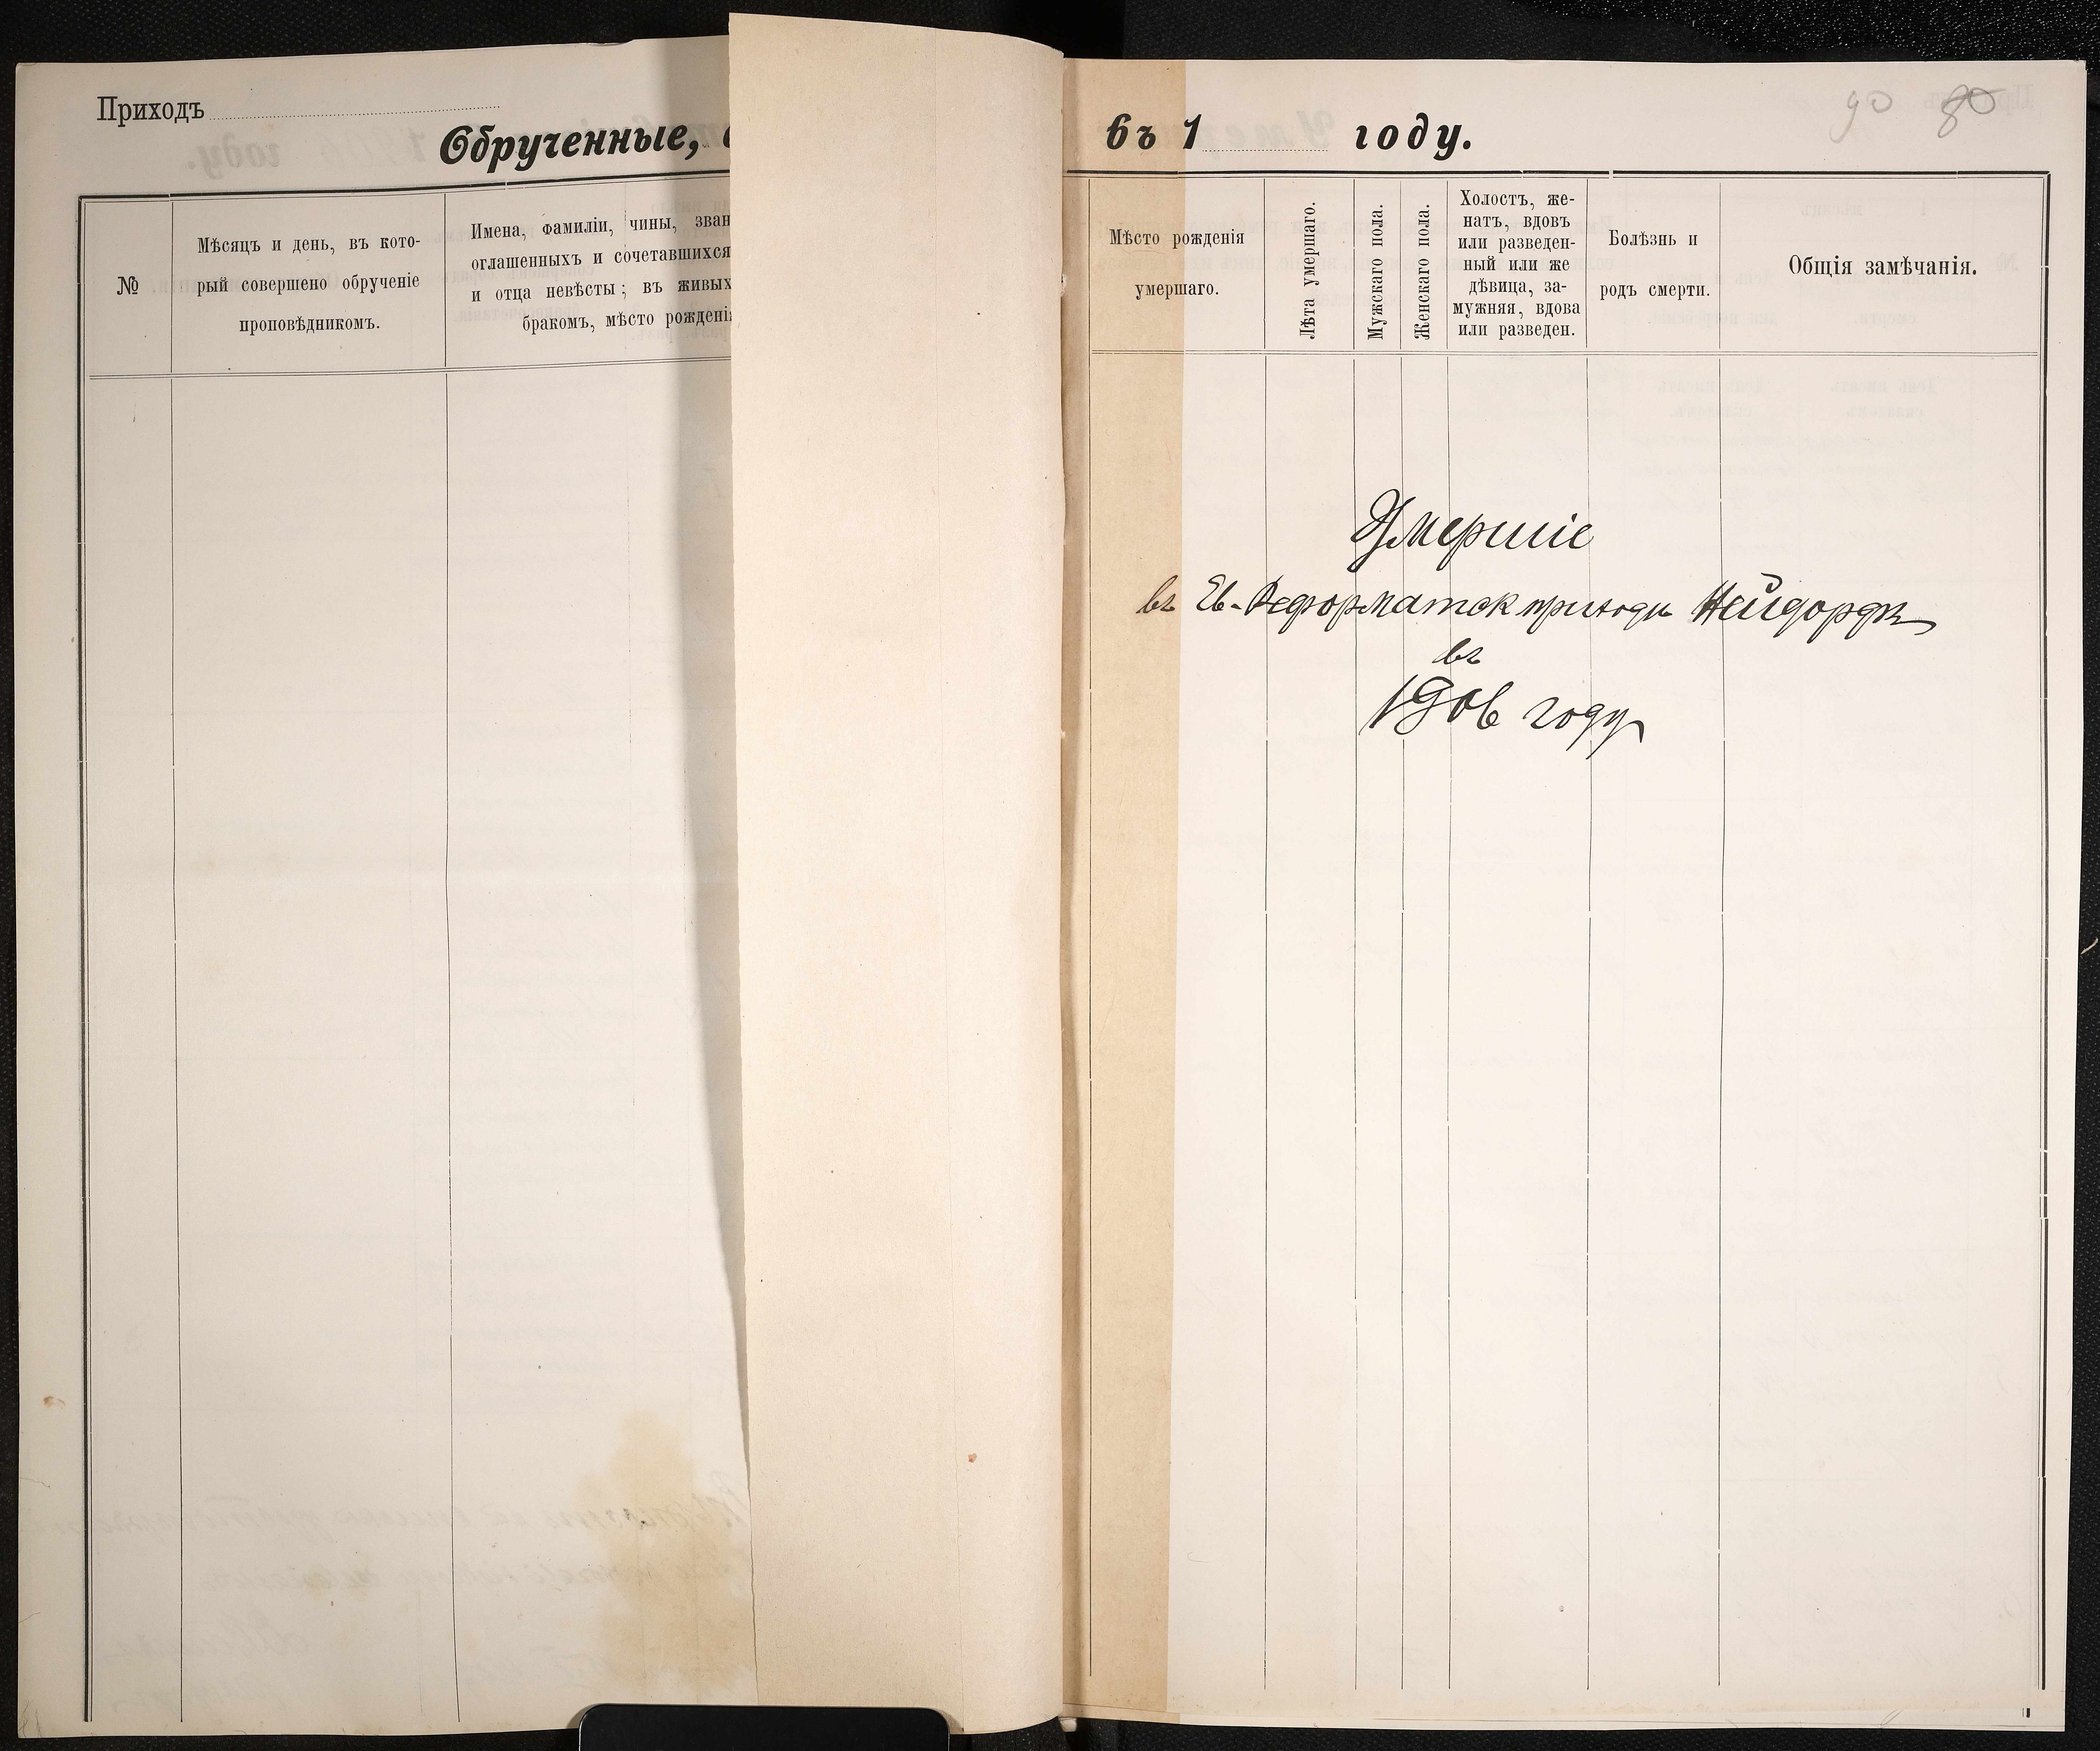 Приходъ
Обрученные,
№
Мѣсяцъ и день, въ кото-
рый совершено обрученіе
проповѣдникомъ.
Имена, фамиліи, чины, зван
оглашенныхъ и сочетавшихся
и отца невѣсты; въ живых
бракомъ, мѣсто рожденія
въ 1 году.
90 80
Мѣсто рожденія
умершаго.
Лѣта умершаго.
Мужскаго пола.
Женскаго пола.
Холостъ, же-
натъ, вдовъ
или разведен-
ный или же
дѣвица, за-
мужняя, вдова
или разведен.
Болѣзнь и
родъ смерти.
Общія замѣчанія.
Умершіе
въ Ев-Реформатск приходѣ Нейдорфъ
въ
1906 году